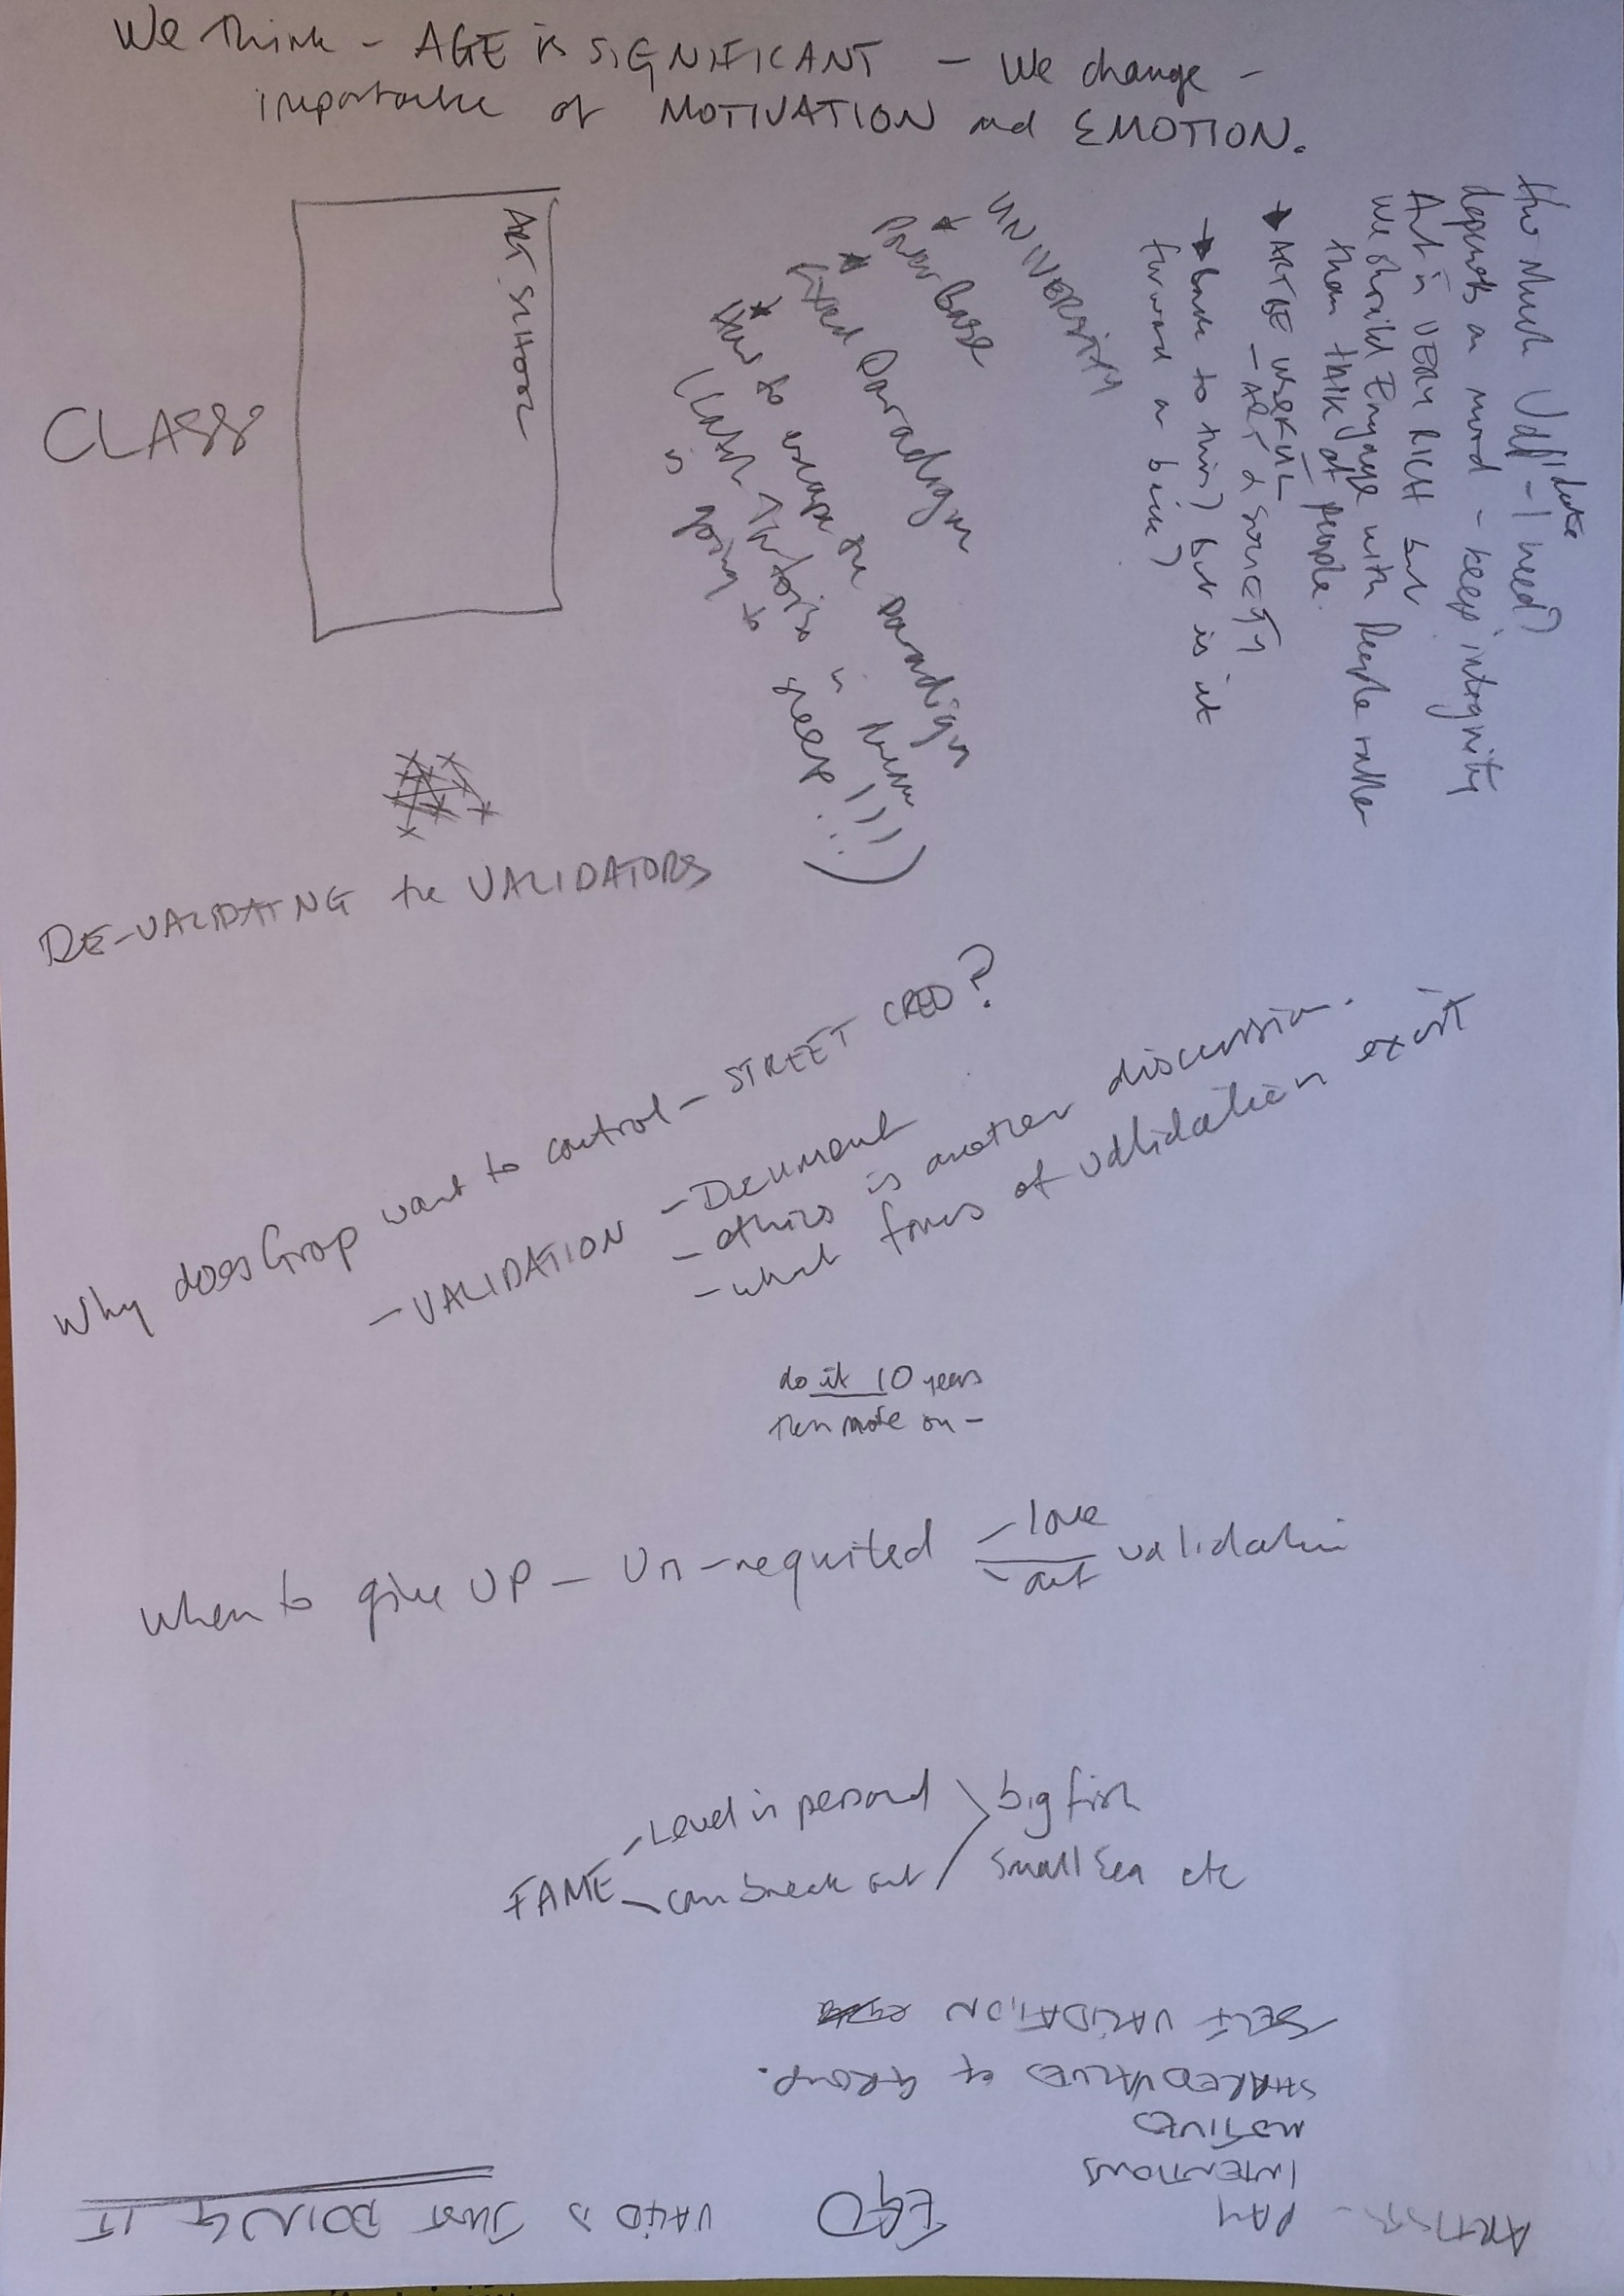 We think - AGE is SIGNIFICANT - We change -
importance of MOTIVATION and EMOTION.
How Much Validate - I need?
depends on mood - keep integrity
Art is VERY RICH but
we should Engage with People rather
than TALK at people.
ART BE USEFUL
- ART & SOCIETY
back to this? but is it
forward or back?
UNIVERSITY
Power Base
Fixed Paradigm
How to escape the paradigm
(CLASH of is here
is going to sleep!!!)
ART SCHOOL
CLASS
RE-VALIDATNG the VALIDATORS
Why does Grop want to control - STREET CRED?
- VALIDATION - Document
- ethics is another discussion.
- what forms of validation exist
do it 10 years
then move on -
When to give UP - Un-requited - love
- art validation
FAME - Level is personal
- can break out
big fish
small sea etc
ARTISTS - PAY
INTENTIONS
MOTIVES
SHARED VALUES of GROUP.
SELF VALIDATION
EGO
VALID is JUST DOING IT